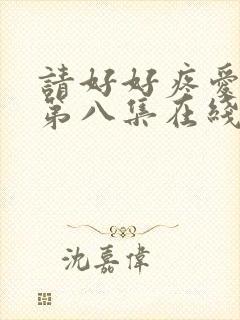 請好好疼愛
第八集在綫
沈嘉偉